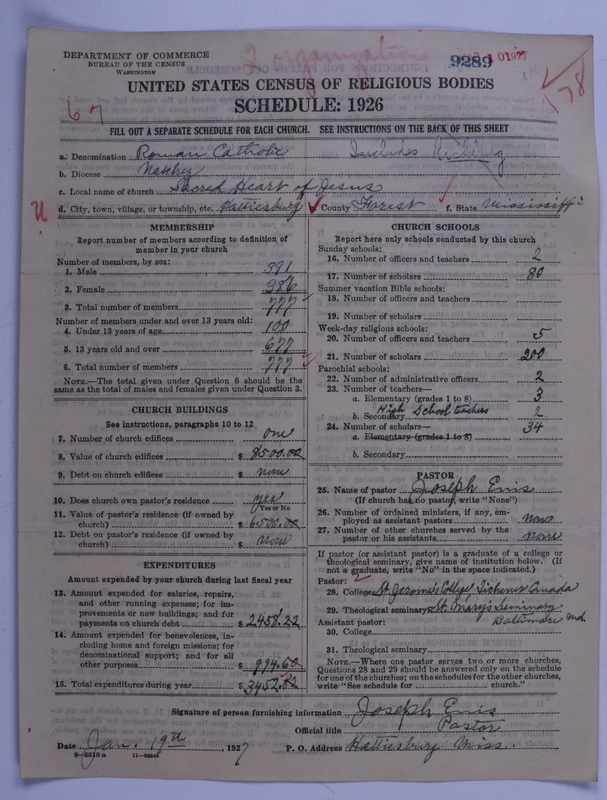 DEPARTMENT OF COMMERCE
BUREAU OF THE CENSUS
WASHINGTON
2 organizations
9289
UNITED STATES CENSUS OF RELIGIOUS BODIES
SCHEDULE: 1926
67
178
FILL OUT A SEPARATE SCHEDULE FOR EACH CHURCH. SEE INSTRUCTIONS ON THE BACK OF THIS SHEET
a. Denomination Roman Catholic Includes
b. Diocese Natchez
c. Local name of church Sacred Heart of Jesus
U
d. City, town, village, or township, etc. Hattiesburg County Forrest f. State Mississippi
MEMBERSHIP
Report number of members according to definition of
member in your church
Number of members, by sex:
1. Male 391
2. Female 386
3. Total number of members 777
Number of members under and over 13 years old:
4. Under 13 years of age 100
5. 13 years old and over 677
6. Total number of members 777
NOTE.—The total given under Question 6 should be the
same as the total of males and females given under Question 3.
CHURCH BUILDINGS
See instructions, paragraphs 10 to 12
7. Number of church edifices one
8. Value of church edifices $ 8500.00
9. Debt on church edifices $ none
10. Does church own pastor's residence yes
Yes or No
11. Value of pastor's residence (if owned by
church) $ 6500.00
12. Debt on pastor's residence (if owned by
church) $ none
EXPENDITURES
Amount expended by your church during last fiscal year
13. Amount expended for salaries, repairs,
and other running expenses; for im-
provements or new buildings; and for
payments on church debt $ 2458.22
14. Amount expended for benevolences, in-
cluding home and foreign missions; for
denominational support; and for all
other purposes $ 994.60
15. Total expenditures during year $ 3452.82
CHURCH SCHOOLS
Report here only schools conducted by this church
Sunday schools:
16. Number of officers and teachers 2
17. Number of scholars 80
Summer vacation Bible schools:
18. Number of officers and teachers
19. Number of scholars
Week-day religious schools:
20. Number of officers and teachers 5
21. Number of scholars 200
Parochial schools:
22. Number of administrative officers 2
23. Number of teachers—
a. Elementary (grades 1 to 8) 3
High School teachers
b. Secondary 2
24. Number of scholars— 34
a. Elementary (grades 1 to 8)
b. Secondary
PASTOR
25. Name of pastor Joseph Enis
(If church has no pastor, write "None")
26. Number of ordained ministers, if any, em-
ployed as assistant pastors none
27. Number of other churches served by the
pastor or his assistants none
If pastor (or assistant pastor) is a graduate of a college or
theological seminary, give name of institution below. (If
not a graduate, write "No" in the space indicated.)
Pastor: 2
28. College St. Jerome's College Canada
29. Theological seminary St. Mary's Seminary
Baltimore Md.
Assistant pastor:
30. College
31. Theological seminary
NOTE.—Where one pastor serves two or more churches,
Questions 28 and 29 should be answered only on the schedule
for one of the churches; on the schedules for the other churches,
write "See schedule for church."
Signature of person furnishing information Joseph Enis
Official title Pastor
Date Jan. 19th, 1927 P. O. Address Hattiesburg Miss.
8—5519 a